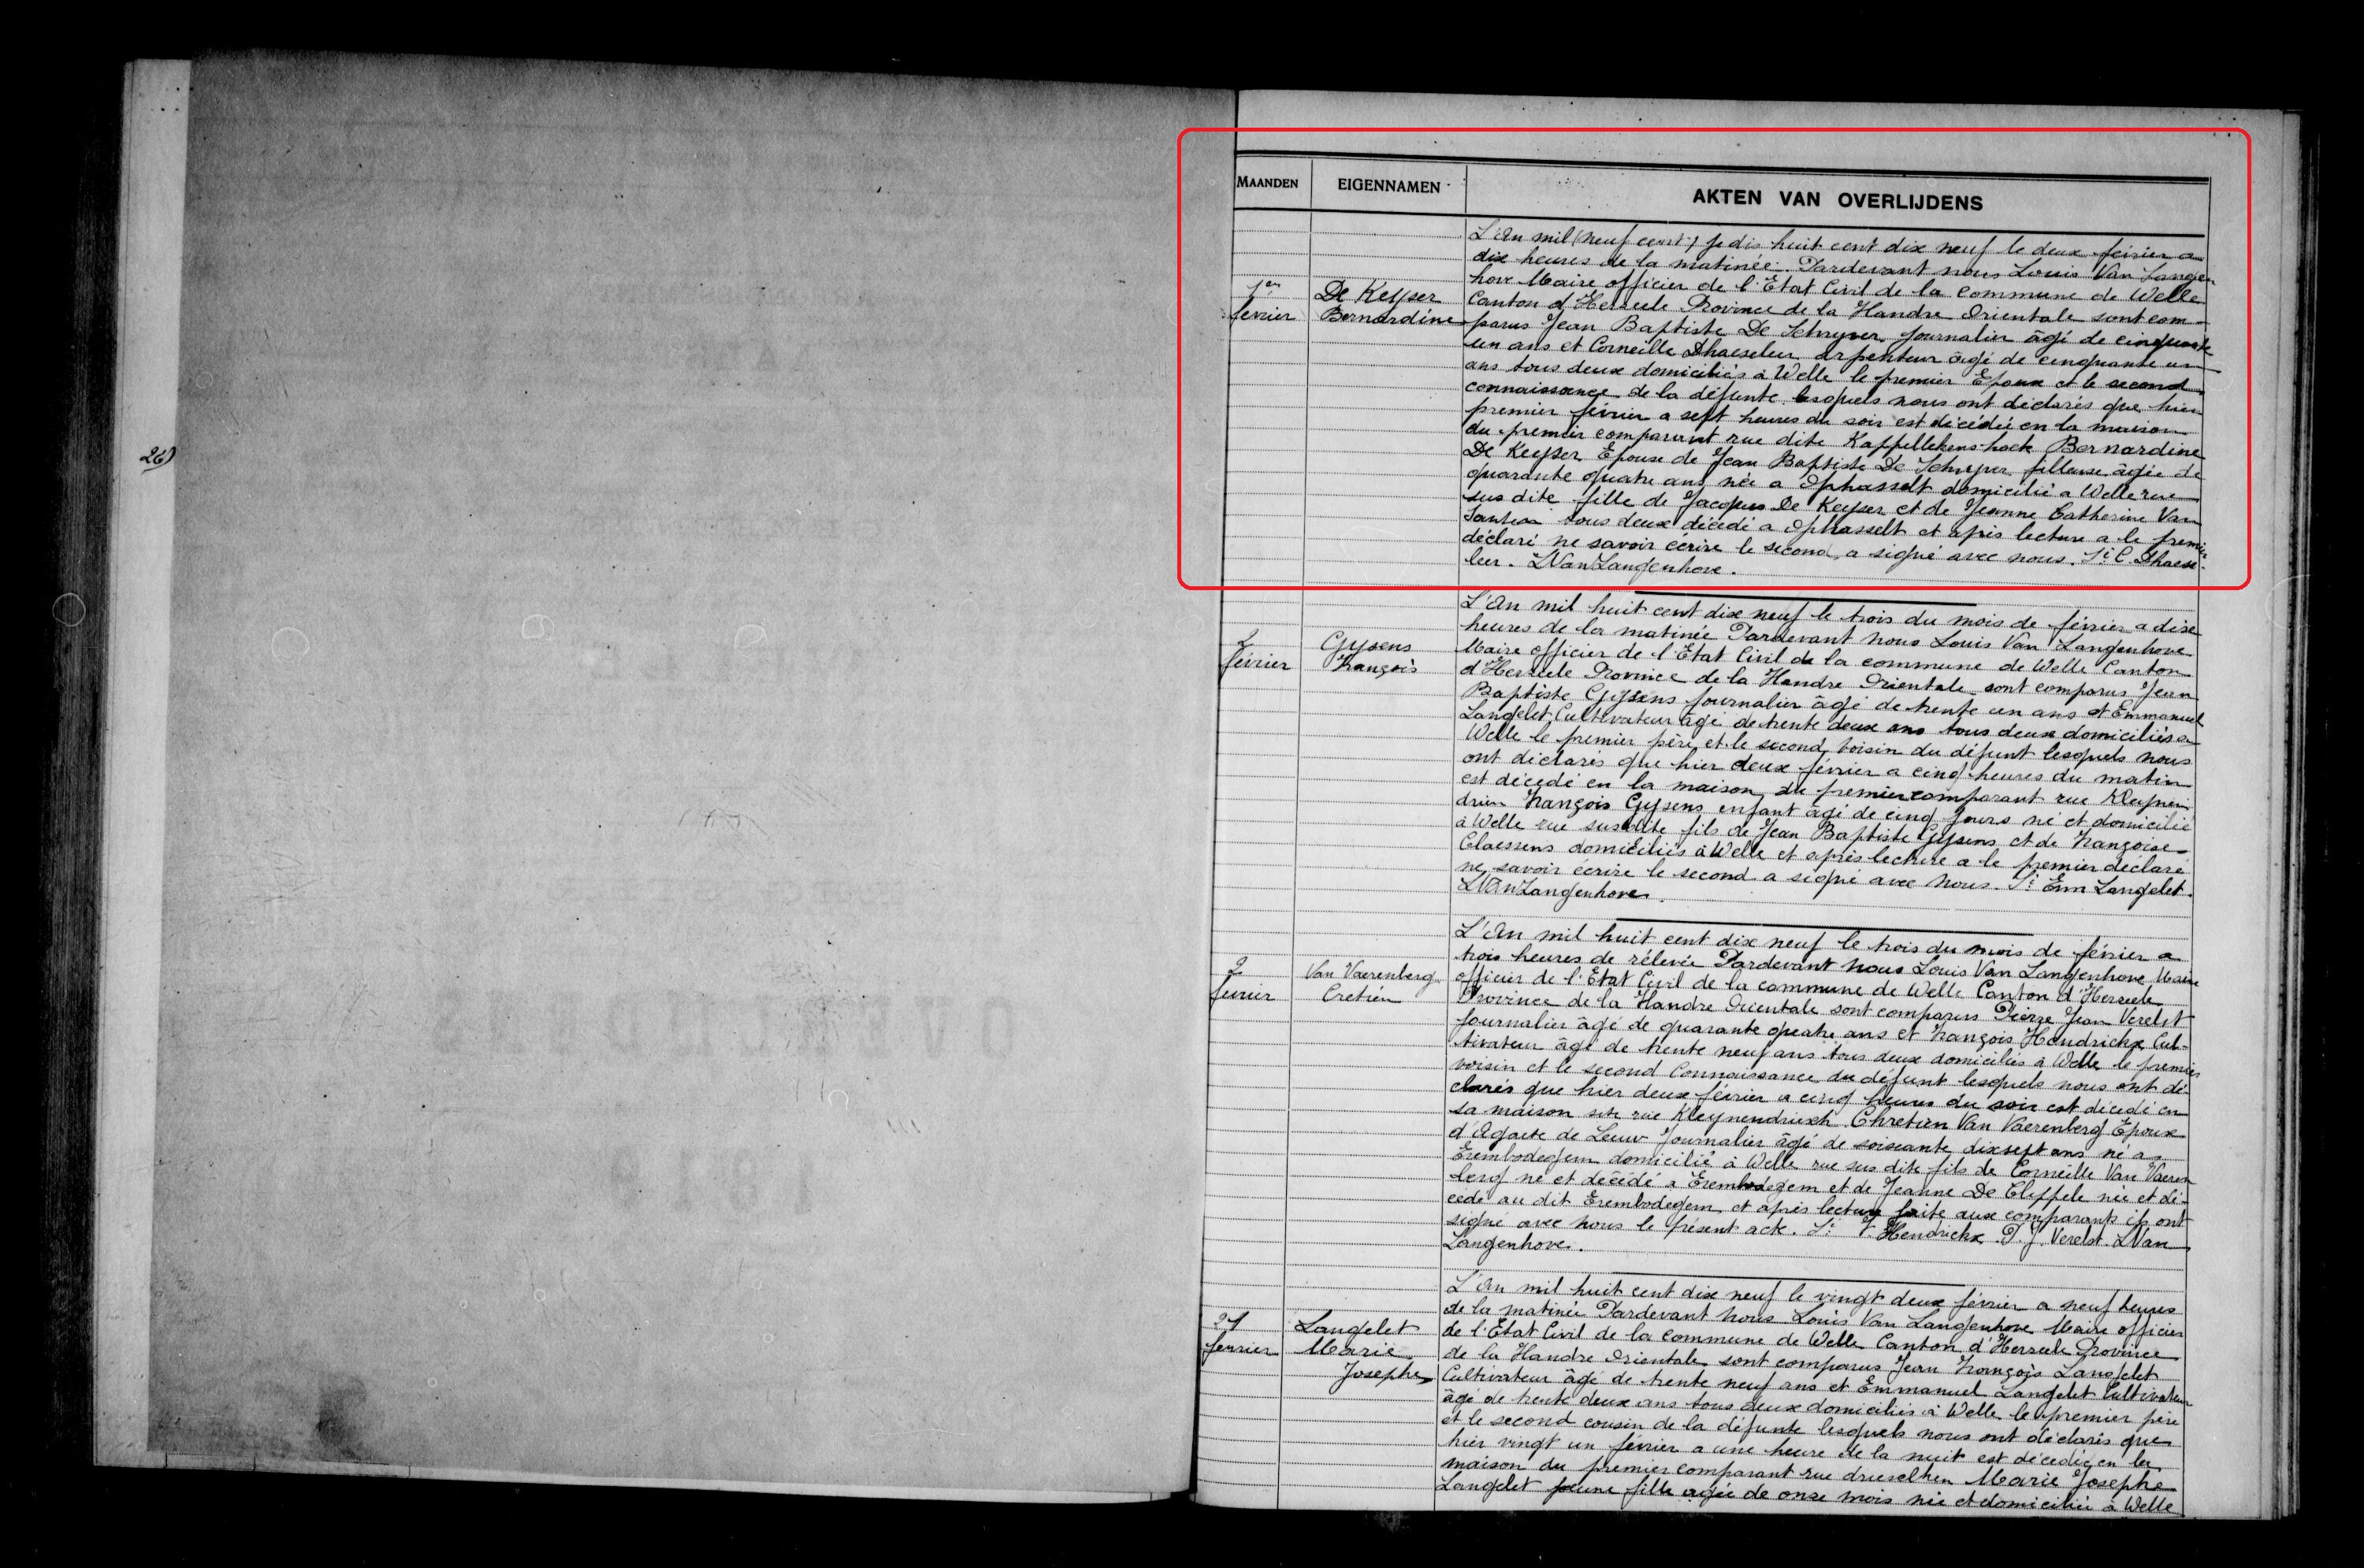 MAANDEN EIGENNAMEN AKTEN VAN OVERLIJDENS
L'An mil (neuf cent) je dis huit cent dix neuf le deux février a
dix heures de la matinée. Pardevant nous Louis Van Langen-
hove Maire officier de l'Etat Civil de la commune de Welle
1er
février
De Keyser
Bernardine
Canton d'Herzele Province de la Flandre Orientale sont com-
parus Jean Baptiste De Schryver journalier âgé de cinquante
un ans et Corneille Dhaeseleer arpenteur âgé de cinquante un
ans tous deux domiciliés à Welle le premier Epoux et le second
connaissance de la défunte lesquels nous ont déclarés que hier
premier février a sept heures du soir est décédée en la maison
du premier comparant rue dite Kappellekens hoek Bernardine
De Keyser Epouse de Jean Baptiste De Schryver filleuse âgée de
quarante quatre ans née a Ophasselt domicilié a Welle rue
sus dite fille de Jacques De Keyser et de Jeanne Catherine Van
tous deux décédé a Ophasselt et après lecture a le premier
déclaré ne savoir écrire le second a signé avec nous. St C. Dhaese-
leer. LVanLangenhove.
26)
L'An mil huit cent dix neuf le trois du mois de février a dix
heures de la matinée Pardevant nous Louis Van Langenhove
2
février
Gysens
François
Maire officier de l'Etat Civil de la commune de Welle Canton
d'Herzele Province de la Flandre Orientale sont comparus Jean
Baptiste Gysens journalier âgé de trente un ans et Emmanuel
Langelet Cultivateur âgé de trente deux ans tous deux domiciliés a
Welle le premier père et le second voisin du défunt lesquels nous
ont déclarés que hier deux février a cinq heures du matin
est décédé en la maison du premier comparant rue Kleynen
dries François Gysens enfant âgé de cinq jours né et domicilié
à Welle rue susdite fils de Jean Baptiste Gysens et de Françoise
Claessens domiciliés à Welle et après lecture a le premier déclaré
ne savoir écrire le second a signé avec nous. St Em Langelet.
LVanLangenhove.
L'An mil huit cent dix neuf le trois du mois de février a
trois heures de rélevée Pardevant nous Louis Van Langenhove Maire
2
février
Van Vaerenberg
Cretién
officier de l'Etat Civil de la commune de Welle Canton d'Herzele
Province de la Flandre Orientale sont comparus Pierre Jean Verelst
journalier âgé de quarante quatre ans et François Hendrickx Cul-
tivateur âgé de trente neuf ans tous deux domiciliés à Welle le premier
voisin et le second Connaissance du défunt lesquels nous ont dé-
clarés que hier deux février a cinq heures du soir est décédé en
sa maison site rue Kleynendriesch Chretien Van Vaerenberg Epoux
d'Agaete de Leuw Journalier âgé de soixante dixsept ans né a
Erembodegem domicilié à Welle rue sus dite fils de Corneille Van Vaeren
berg né et décédé a Erembodegem et de Jeanne De Cleppele née et dé-
cédé au dit Erembodegem et après lecture faite aux comparants ils ont
signé avec nous le présent acte. St F. Hendrickx P. J. Verelst LVan
Langenhove.
L'An mil huit cent dix neuf le vingt deux février a neuf heures
de la matinée Pardevant nous Louis Van Langenhove Maire officier
21
février
Langelet
Marie
Josephe
de l'Etat Civil de la commune de Welle Canton d'Herzele Province
de la Flandre Orientale sont comparus Jean François Langelet
Cultivateur âgé de trente neuf ans et Emmanuel Langelet Cultivateur
âgé de trente deux ans tous deux domiciliés à Welle le premier père
et le second cousin de la défunte lesquels nous ont déclarés que
hier vingt un février a une heure de la nuit est décédée en la
maison du premier comparant rue drieschen Marie Josephe
Langelet jeune fille agée de onze mois née et domiciliée à Welle